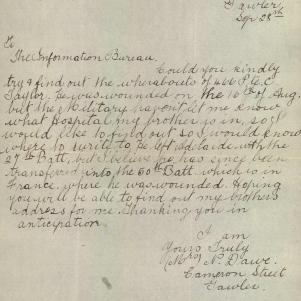 Gawler,
Sep 28th
To
The Information Bureau.
Could you kindly
try & find out the whereabouts of 466 Pte C
Taylor. He was wounded on the 16th of Aug
but the Military havent let me know
what Hospital my brother is in, so I
would like to find out so I would know
where to write to. He left Adelaide with the
27th Batt, but I believe he has since been
transferred into the 60th Batt which is in
France, where he was wounded. Hoping
you will be able to find out my brothers
address for me. Thanking you in
anticipation.
I am
Yours Truly
(Mrs) N. Dawe.
Cameron Street
Gawler.